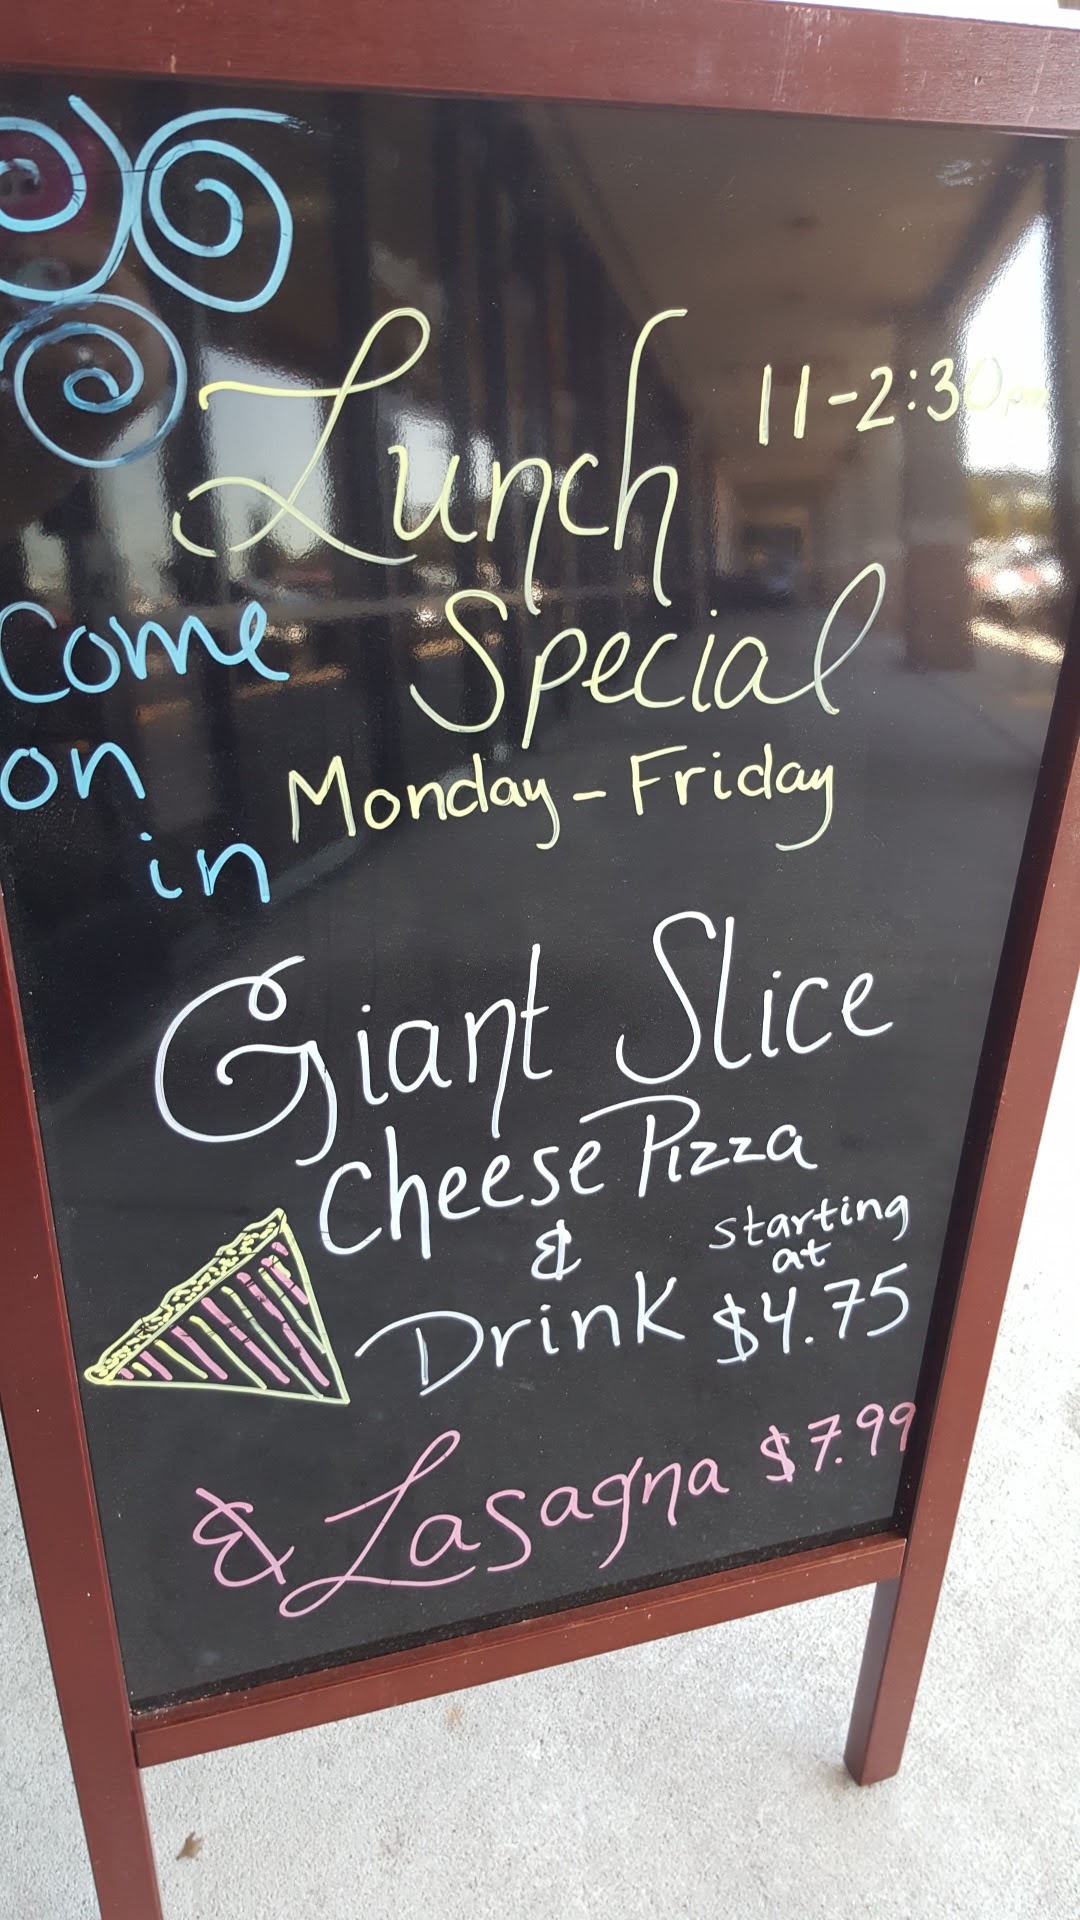 Lunch 11-2:30pm
Special
Monday-Friday
Come
on
in
Giant Slice
Cheese Pizza
&
Drink starting
at
$4.75
& Lasagna $7.99